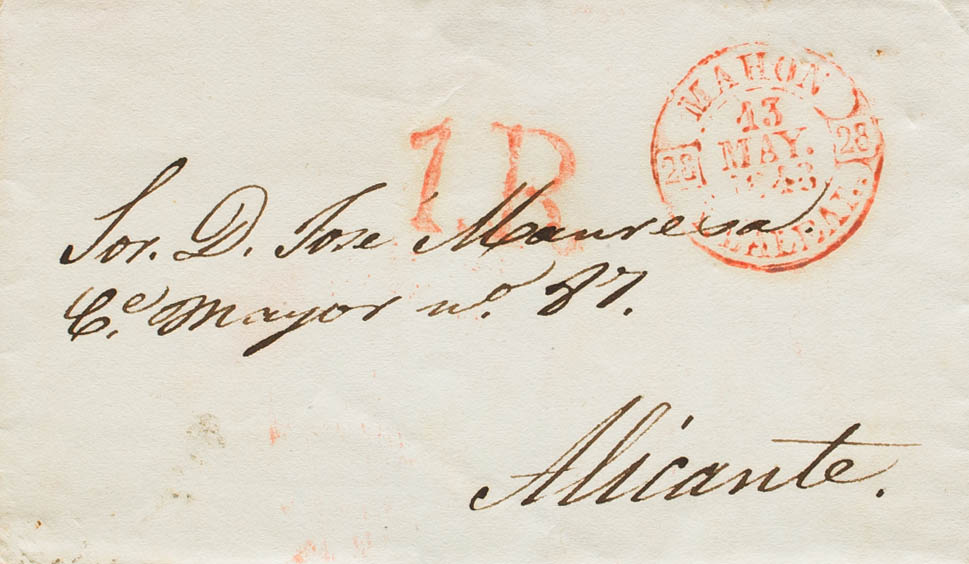 MAHON
13
MAY.
1848
28 28
BALEAR.
1 R
Sor. D. José Manresa.
Ce. Mayor no. 37.
Alicante.